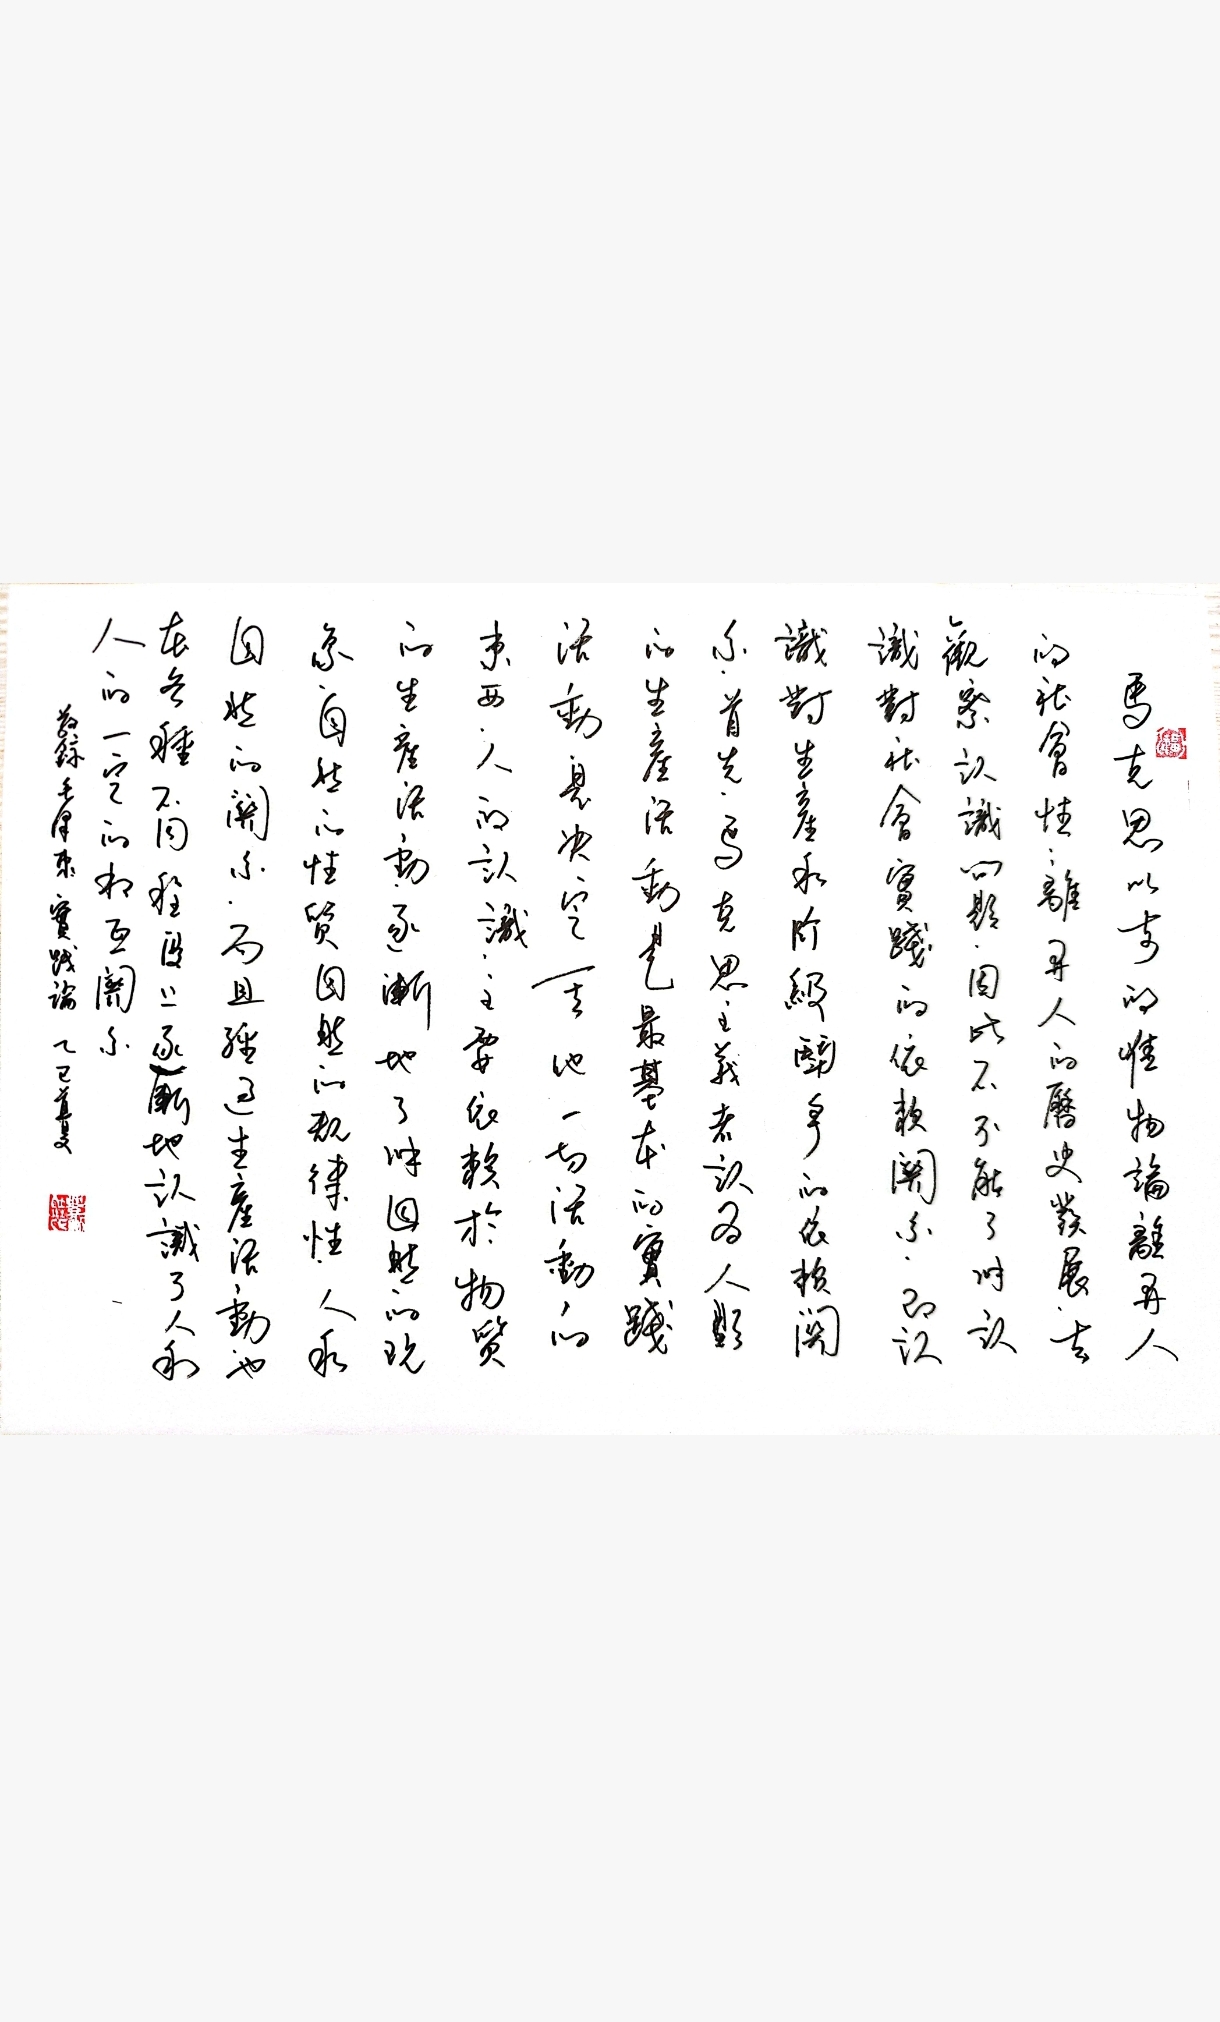 馬克思以前的唯物論離開人
的社會性離開人的歷史發展去
觀察認識問題因此不能了解認
識對社會實踐的依賴關系即認
識對生產和階級鬪爭的依賴關
系首先馬克思主義者認為人類
的生產活動是最基本的實踐
活動是決定一
切其他一切活動的
東西人的認識主要依賴於物質
的生產活動逐漸地了解自然的現
象自然的性質自然的規律性人和
自然的關系而且經過生產活動也
在各種不同程度上逐漸地認識了人和
人的一定的相互關系
節錄毛澤東實踐論乙巳夏